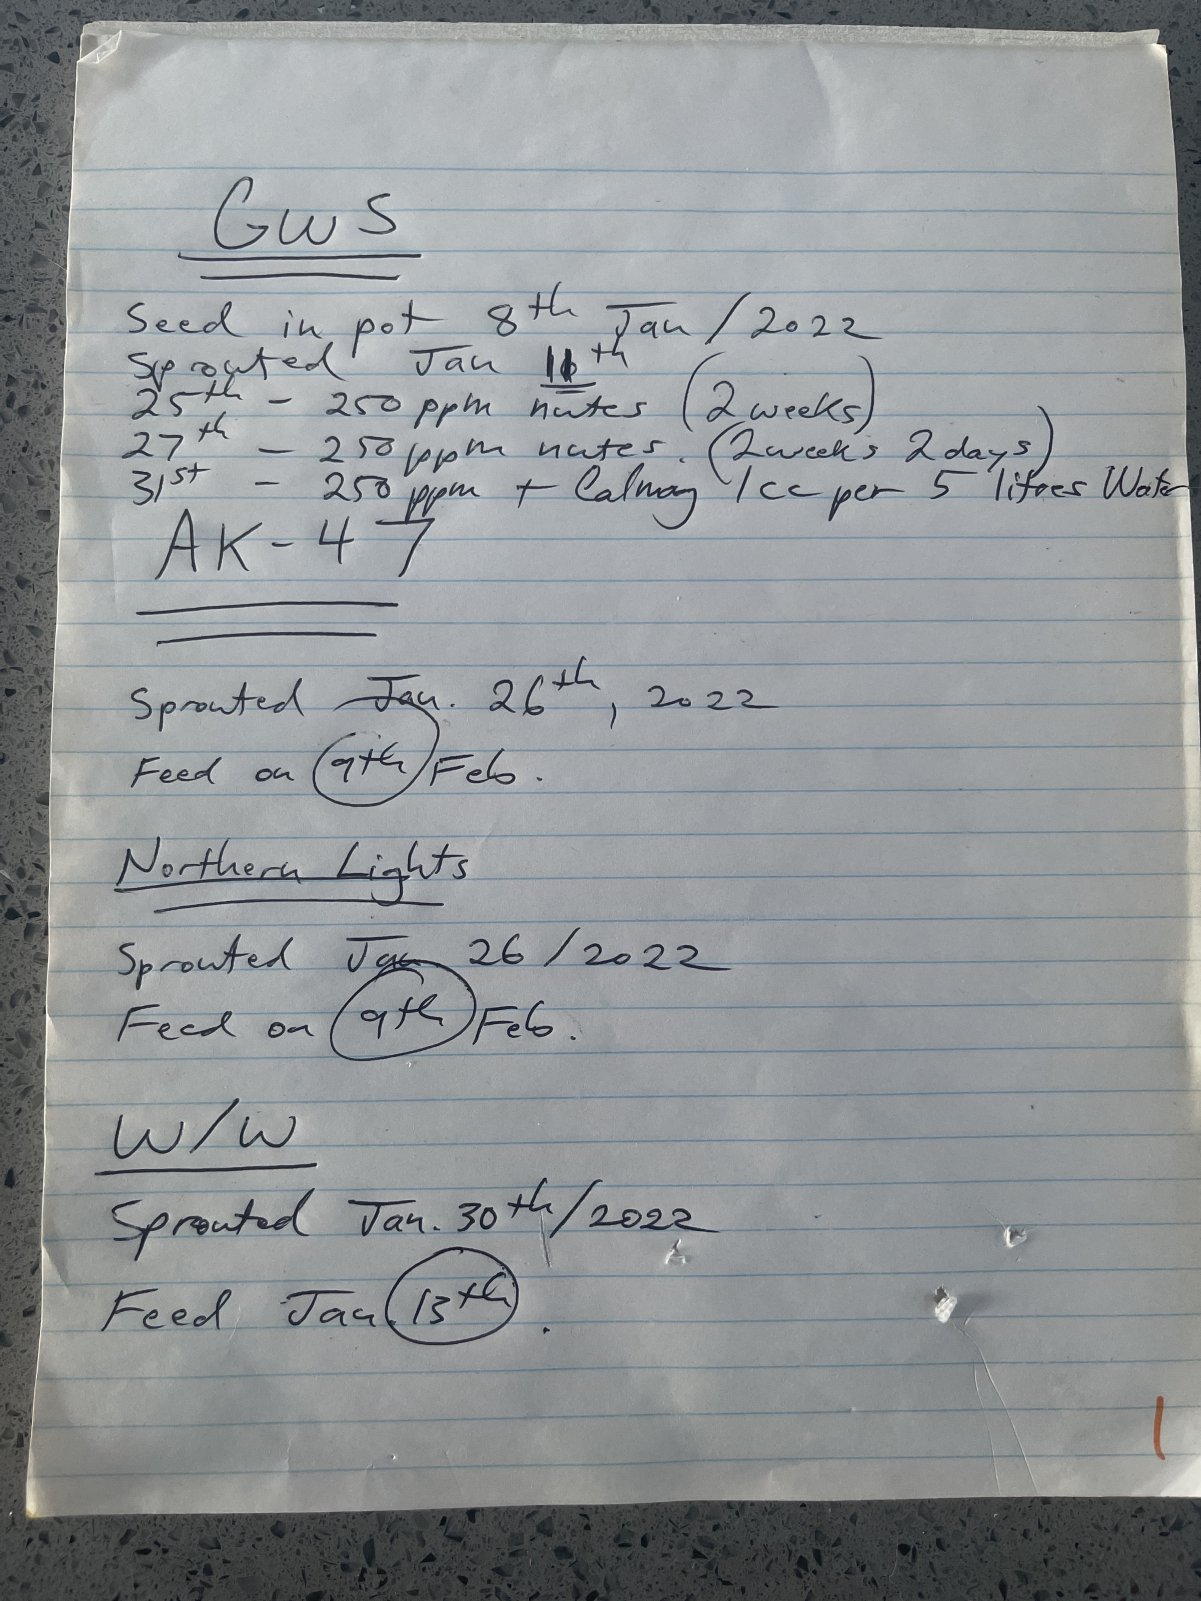 GWS
Seed in pot 8th Jan / 2022
Sprouted Jan 11th
25th - 250 ppm nutes (2 weeks)
27th - 250 ppm nutes. (2 weeks 2 days)
31st - 250 ppm + Calmag 1 cc per 5 litres Water
AK-47
Sprouted Jan. 26th, 2022
Feed on 9th Feb.
Northern Lights
Sprouted Jan 26/2022
Feed on 9th Feb.
W/W
Sprouted Jan. 30th/2022
Feed Jan. 13th.
1